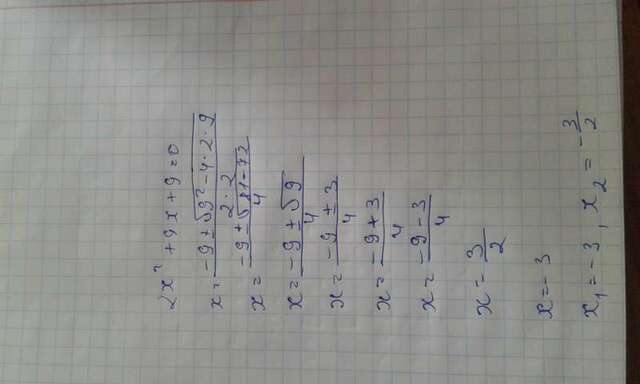 2x² + 9x + 9 = 0
x = (-9 ± √(9² - 4 · 2 · 9)) / (2 · 2)
x = (-9 ± √(81 - 72)) / 4
x = (-9 ± √9) / 4
x = (-9 ± 3) / 4
x = (-9 + 3) / 4
x = (-9 - 3) / 4
x - 3/2
x = -3
x₁ = -3, x₂ = -3/2